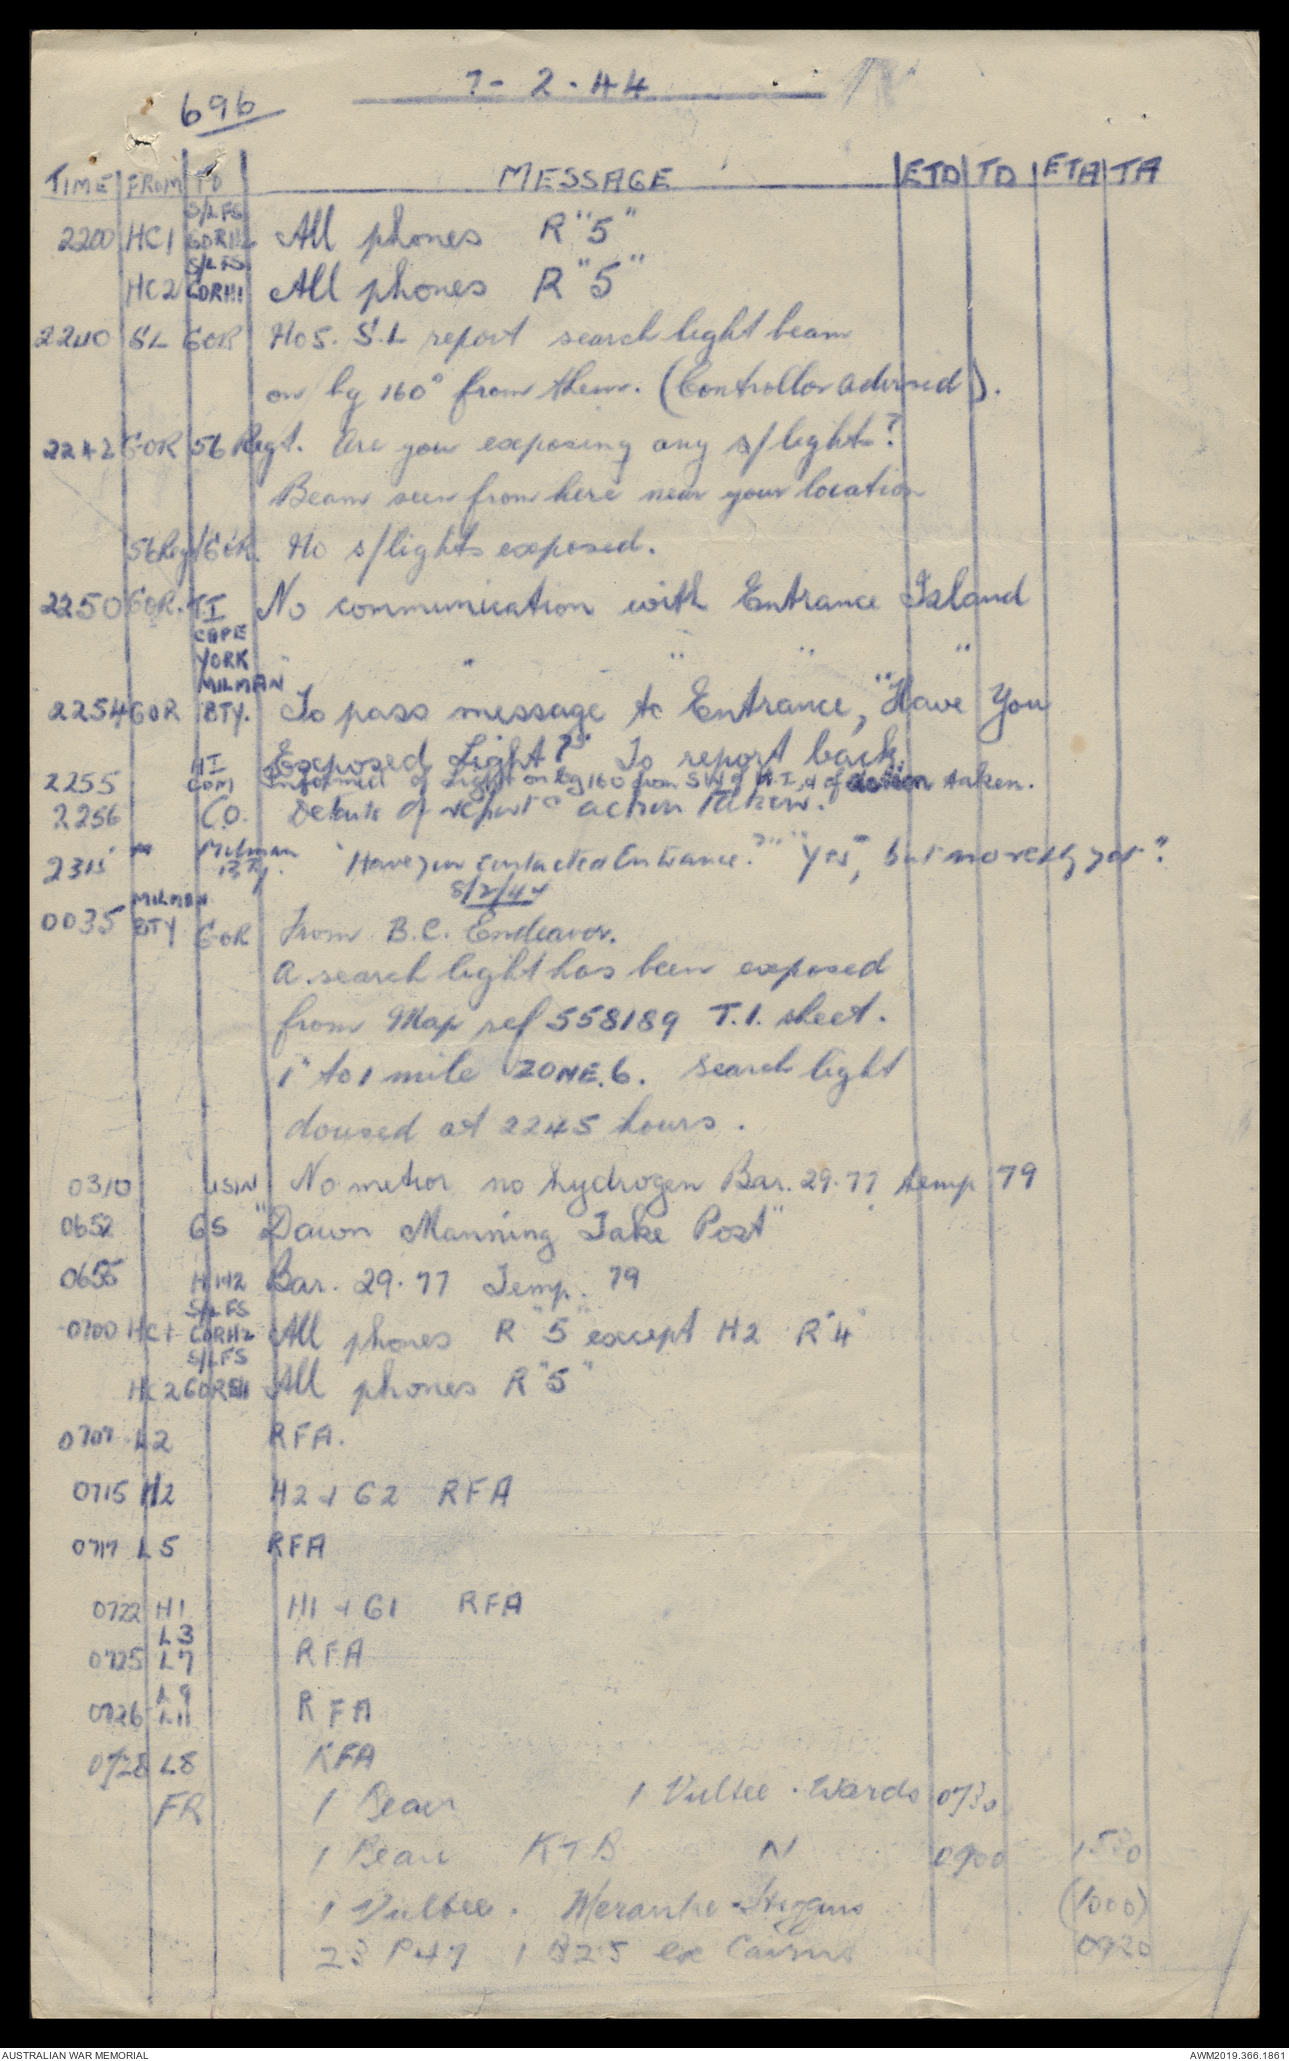 7-2-44
696
TIME FROM TO MESSAGE ETD TD ETA TA
S/LFS
2200 HC1 GORH2 All phones R "5"
S/LFS
HC2 GORH1 All phones R "5"
2240 SL GOR No5. S.L report search light beam
on bg 160° from them. (Controllor advised).
2242 GOR 56 Regt. Are you exposing any s/lights?
Beam seen from here near your location
56 Regt GOR. No s/lights exposed.
2250 GOR. TI No communication with Entrance Island
CAPE
YORK " " " " "
MILMAN
2254 GOR BTY. To pass message to Entrance, "Have You
Exposed Light?" To report back
HI
2255 COM Informed of Light on bg 160 from S W of H.I, & of action taken.
2256 C.O. Details of report & action taken.
2315 " Milman
Bty. "Have you contacted Entrance?" "Yes, but no reply yet".
8/2/44
MILMAN
0035 BTY GOR From B.C. Endeavor.
A search light has been exposed
from Map ref 558189 T.I. sheet.
1" to 1 mile ZONE.6. Search light
doused at 2245 hours.
0310 USIN No meteor no hydrogen Bar. 29.77 temp 79
0652 GS "Dawn Manning Take Post"
0655 H1H2 Bar. 29.77 Temp. 79
S/LFS
0700 HC1 GORH2 All phones R "5" except H2 R"4"
S/LFS
HC2 GORH1 All phones R "5"
0707 L2 RFA.
0715 H2 H2 + G2 RFA
0717 L5 RFA
0722 H1 H1 + G1 RFA
L3
0725 L7 RFA
L9
0726 L11 RFA
0728 L8 RFA
FR 1 Beau 1 Vultee . Wards 0730
1 Beau KTB N 0900 1530
1 Vultee . Merauke Higgins (1000)
23 P47 1 B25 ex Cairns 0920
AUSTRALIAN WAR MEMORIAL AWM2019.366.1861